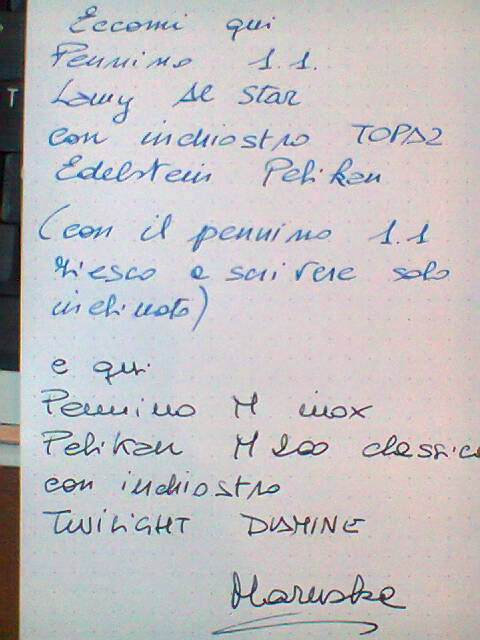 Eccomi qui
Pennino 1.1.
Lamy Al Star
con inchiostro TOPAZ
Edelstein Pelikan
(con il pennino 1.1
riesco a scrivere solo
inclinato)
e qui
Pennino M inox
Pelikan M200 classic
con inchiostro
TWILIGHT DIAMINE
Maruska
T